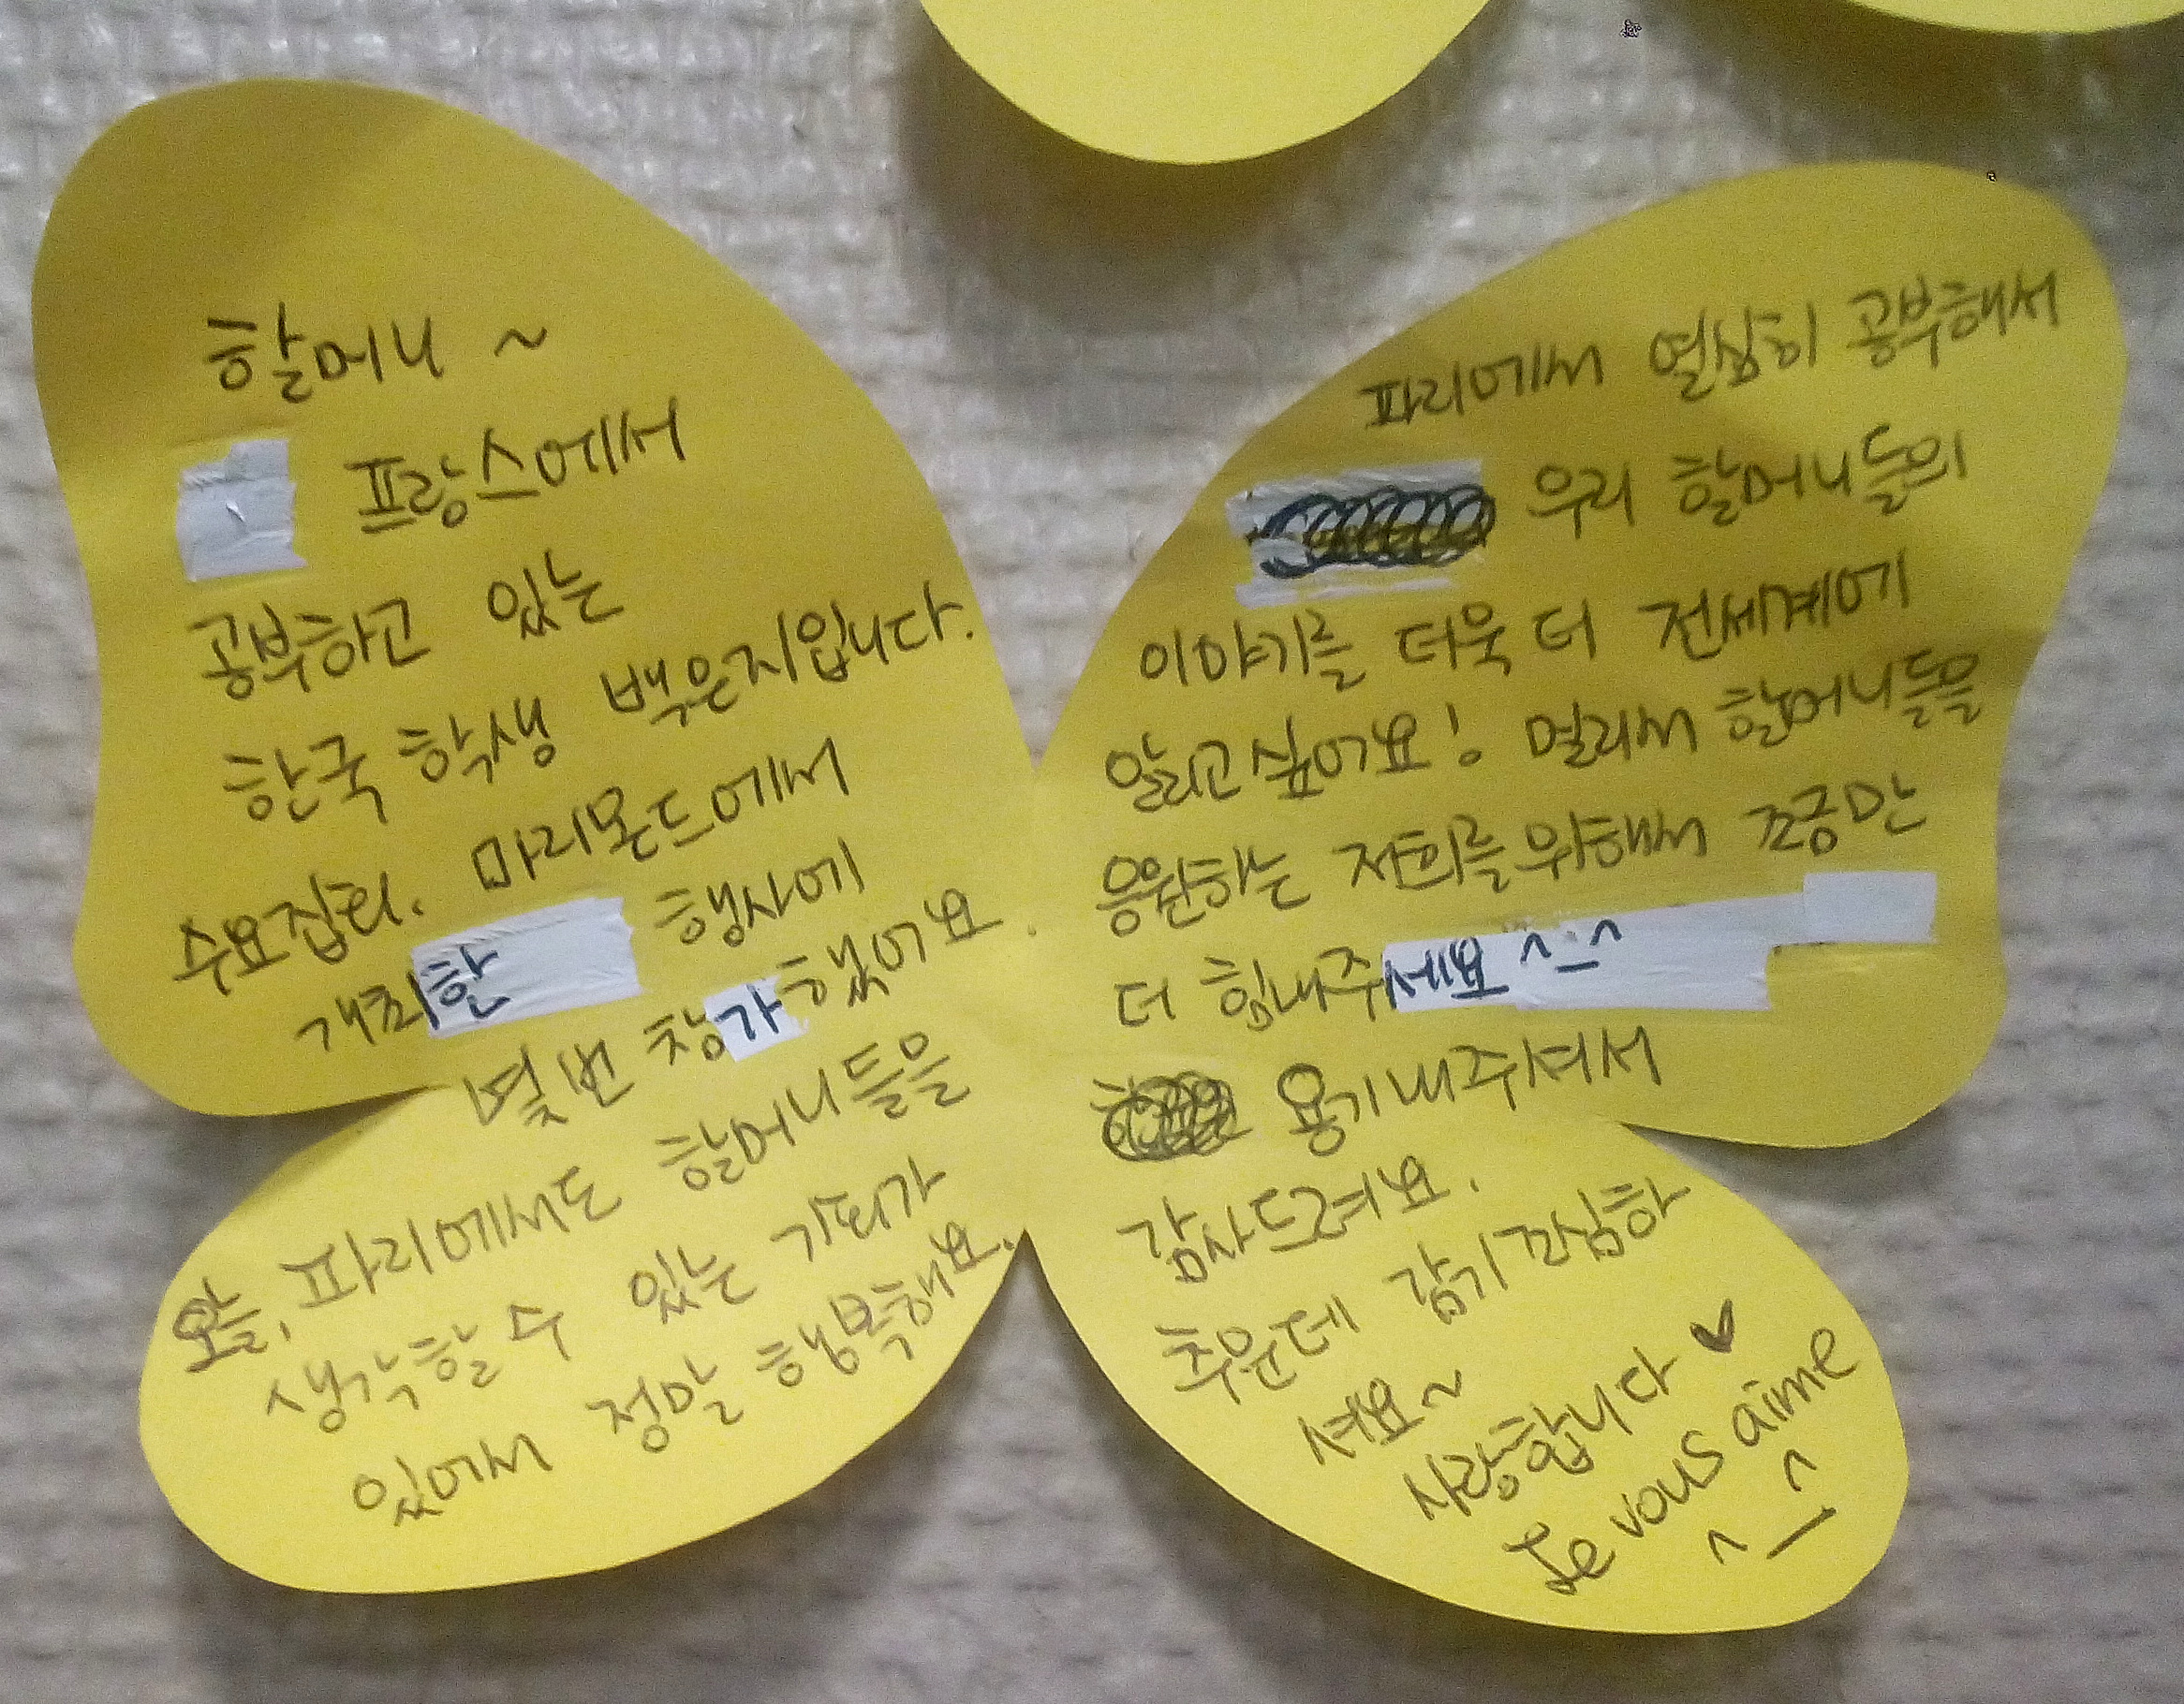 할머니 ~
프랑스에서
공부하고 있는
한국 학생 백은지입니다.
수요집회. 마리몬드에서
개최한 행사에
몇 번 참가했어요.
오늘, 파리에서도 할머니들을
생각할 수 있는 기회가
있어서 정말 행복해요.
파리에서 열심히 공부해서
우리 할머니들의
이야기를 더욱 더 전세계에
알리고 싶어요! 멀리서 할머니들을
응원하는 저희를 위해서 조금만
더 힘내주세요 ^_^
용기내주셔서
감사드려요.
추운데 감기 조심하
셔요~
사랑합니다 ♥
Je vous aime
^_^